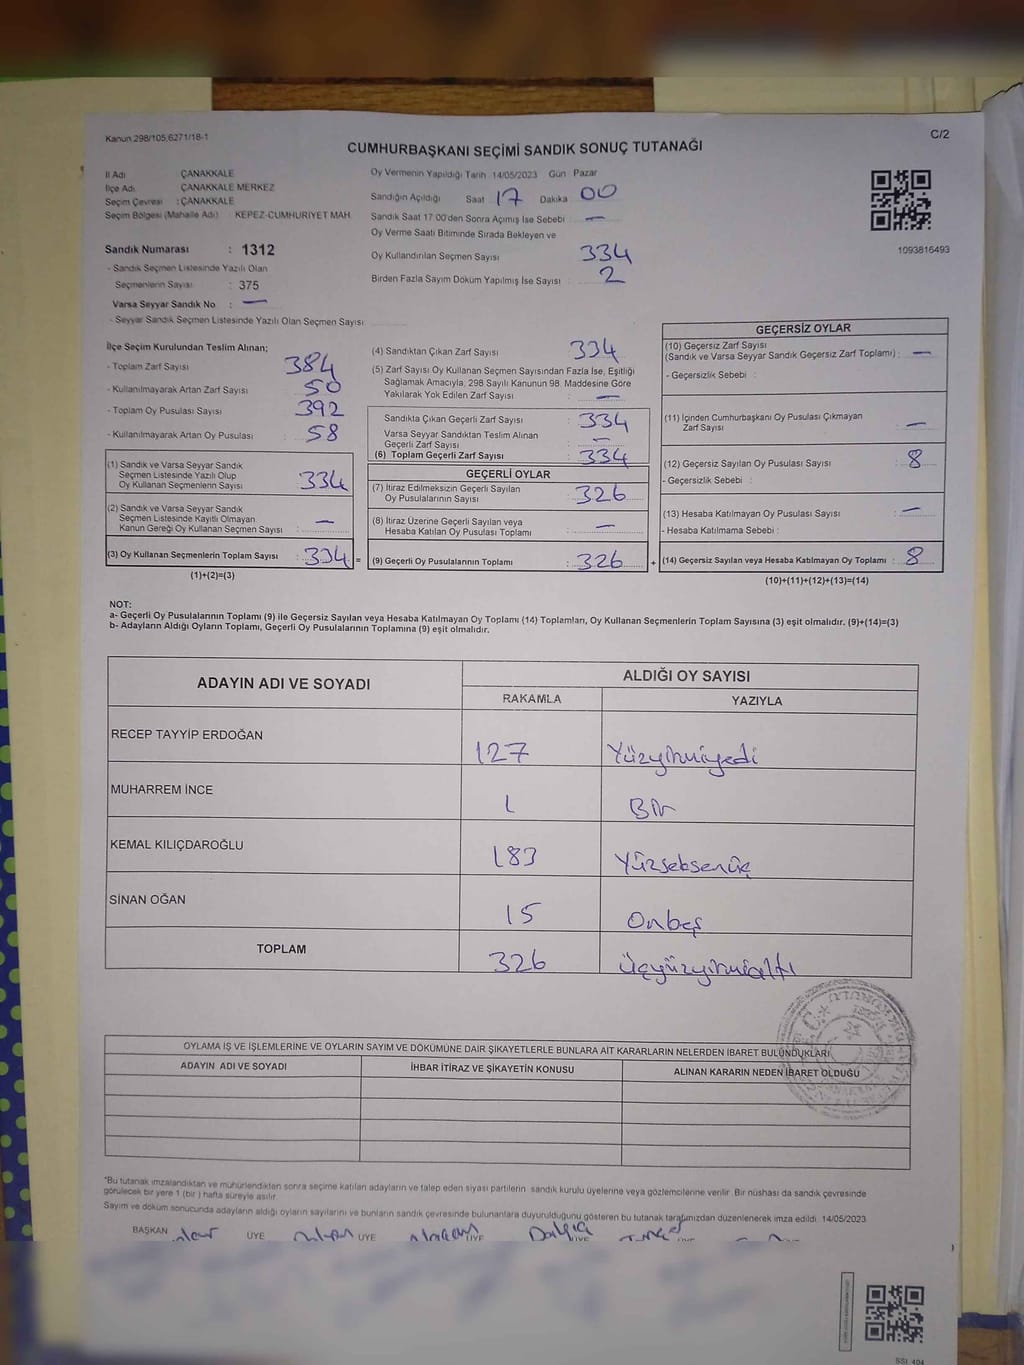 Kanun 298/105,6271/18-1
C/2
CUMHURBAŞKANI SEÇİMİ SANDIK SONUÇ TUTANAĞI
İl Adı : ÇANAKKALE
İlçe Adı : ÇANAKKALE MERKEZ
Seçim Çevresi : ÇANAKKALE
Seçim Bölgesi (Mahalle Adı) : KEPEZ-CUMHURİYET MAH.
Sandık Numarası : 1312
- Sandık Seçmen Listesinde Yazılı Olan
Seçmenlerin Sayısı : 375
Varsa Seyyar Sandık No : —
- Seyyar Sandık Seçmen Listesinde Yazılı Olan Seçmen Sayısı
Oy Vermenin Yapıldığı Tarih 14/05/2023 Gün Pazar
Sandığın Açıldığı Saat 17 Dakika 00
Sandık Saat 17:00'den Sonra Açımış İse Sebebi : —
Oy Verme Saati Bitiminde Sırada Bekleyen ve
Oy Kullandırılan Seçmen Sayısı 334
Birden Fazla Sayım Döküm Yapılmış İse Sayısı : 2
1093816493
İlçe Seçim Kurulundan Teslim Alınan;
- Toplam Zarf Sayısı : 384
- Kullanılmayarak Artan Zarf Sayısı : 50
- Toplam Oy Pusulası Sayısı : 392
- Kullanılmayarak Artan Oy Pusulası : 58
(1) Sandık ve Varsa Seyyar Sandık
Seçmen Listesinde Yazılı Olup
Oy Kullanan Seçmenlerin Sayısı : 334
(2) Sandık ve Varsa Seyyar Sandık
Seçmen Listesinde Kayıtlı Olmayan
Kanun Gereği Oy Kullanan Seçmen Sayısı : —
(3) Oy Kullanan Seçmenlerin Toplam Sayısı : 334 =
(1)+(2)=(3)
(4) Sandıktan Çıkan Zarf Sayısı 334
(5) Zarf Sayısı Oy Kullanan Seçmen Sayısından Fazla İse, Eşitliği
Sağlamak Amacıyla, 298 Sayılı Kanunun 98. Maddesine Göre
Yakılarak Yok Edilen Zarf Sayısı : —
Sandıkta Çıkan Geçerli Zarf Sayısı : 334
Varsa Seyyar Sandıktan Teslim Alınan
Geçerli Zarf Sayısı : —
(6) Toplam Geçerli Zarf Sayısı : 334
GEÇERLİ OYLAR
(7) İtiraz Edilmeksizin Geçerli Sayılan
Oy Pusulalarının Sayısı : 326
(8) İtiraz Üzerine Geçerli Sayılan veya
Hesaba Katılan Oy Pusulası Toplamı : —
(9) Geçerli Oy Pusulalarının Toplamı : 326 +
GEÇERSİZ OYLAR
(10) Geçersiz Zarf Sayısı
(Sandık ve Varsa Seyyar Sandık Geçersiz Zarf Toplamı) : —
- Geçersizlik Sebebi :
(11) İçinden Cumhurbaşkanı Oy Pusulası Çıkmayan
Zarf Sayısı : —
(12) Geçersiz Sayılan Oy Pusulası Sayısı : 8
- Geçersizlik Sebebi :
(13) Hesaba Katılmayan Oy Pusulası Sayısı : —
- Hesaba Katılmama Sebebi :
(14) Geçersiz Sayılan veya Hesaba Katılmayan Oy Toplamı : 8
(10)+(11)+(12)+(13)=(14)
NOT:
a- Geçerli Oy Pusulalarının Toplamı (9) ile Geçersiz Sayılan veya Hesaba Katılmayan Oy Toplamı (14) Toplamları, Oy Kullanan Seçmenlerin Toplam Sayısına (3) eşit olmalıdır. (9)+(14)=(3)
b- Adayların Aldığı Oyların Toplamı, Geçerli Oy Pusulalarının Toplamına (9) eşit olmalıdır.
ADAYIN ADI VE SOYADI
ALDIĞI OY SAYISI
RAKAMLA YAZIYLA
RECEP TAYYİP ERDOĞAN 127 Yüzyirmiyedi
MUHARREM İNCE 1 Bir
KEMAL KILIÇDAROĞLU 183 Yüzseksenüç
SİNAN OĞAN 15 Onbeş
TOPLAM 326 Üçyüzyirmialtı
OYLAMA İŞ VE İŞLEMLERİNE VE OYLARIN SAYIM VE DÖKÜMÜNE DAİR ŞİKAYETLERLE BUNLARA AİT KARARLARIN NELERDEN İBARET BULUNDUKLARI
ADAYIN ADI VE SOYADI İHBAR İTİRAZ VE ŞİKAYETİN KONUSU ALINAN KARARIN NEDEN İBARET OLDUĞU
*Bu tutanak imzalandıktan ve mühürlendikten sonra seçime katılan adayların ve talep eden siyasi partilerin sandık kurulu üyelerine veya gözlemcilerine verilir. Bir nüshası da sandık çevresinde
görülecek bir yere 1 (bir) hafta süreyle asılır.
Sayım ve döküm sonucunda adayların aldığı oyların sayılarını ve bunların sandık çevresinde bulunanlara duyurulduğunu gösteren bu tutanak tarafımızdan düzenlenerek imza edildi. 14/05/2023
BAŞKAN ÜYE ÜYE ÜYE ÜYE